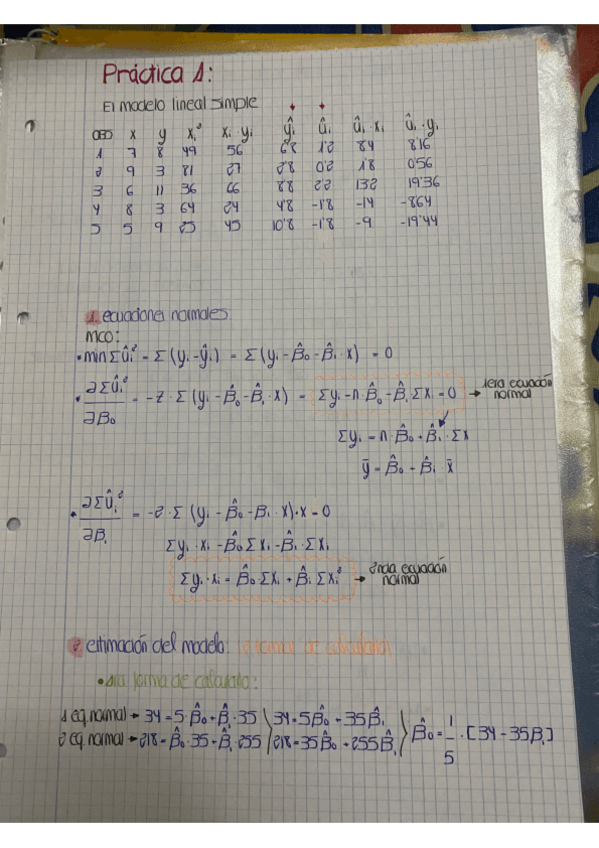 Práctica 1:
El modelo lineal simple
OBD x y xᵢ² xᵢ · yᵢ ŷᵢ ûᵢ ûᵢ · xᵢ ûᵢ · yᵢ
1 7 8 49 56 6'8 1'2 8'4 8'16
2 9 3 81 27 2'8 0'2 1'8 0'56
3 6 11 36 66 8'8 2'2 13'2 19'36
4 8 3 64 24 4'8 -1'8 -14 -8'64
5 5 9 25 45 10'8 -1'8 -9 -19'44
1. ecuaciones normales
MCO:
• min Σûᵢ² = Σ(yᵢ - ŷᵢ) = Σ(yᵢ - β̂₀ - β̂ᵢ · x) = 0
• ∂Σûᵢ² / ∂β₀ = -2 · Σ(yᵢ - β̂₀ - β̂ᵢ · x) = Σyᵢ - n · β̂₀ - β̂ᵢ Σxᵢ = 0 → 1era ecuación normal
Σyᵢ = n · β̂₀ + β̂ᵢ · Σx
ȳ = β̂₀ - β̂ᵢ · x̄
• ∂Σûᵢ² / ∂βᵢ = -2 · Σ(yᵢ - β̂₀ - βᵢ · x) · x = 0
Σyᵢ · xᵢ - β̂₀ Σxᵢ - β̂ᵢ · Σxᵢ
Σyᵢ · xᵢ = β̂₀ · Σxᵢ + β̂ᵢ Σxᵢ² → 2nda ecuación normal
2. estimación del modelo: (2 formas de calcularlo)
• 1ra forma de calcularlo:
1 eq. normal → 34 = 5 · β̂₀ + β̂ᵢ · 35 / 34 = 5β̂₀ + 35β̂ᵢ
2 eq. normal → 218 = β̂₀ · 35 + β̂ᵢ · 255 / 218 = 35β̂₀ + 255β̂ᵢ } β̂₀ = 1/5 · [34 - 35βᵢ]